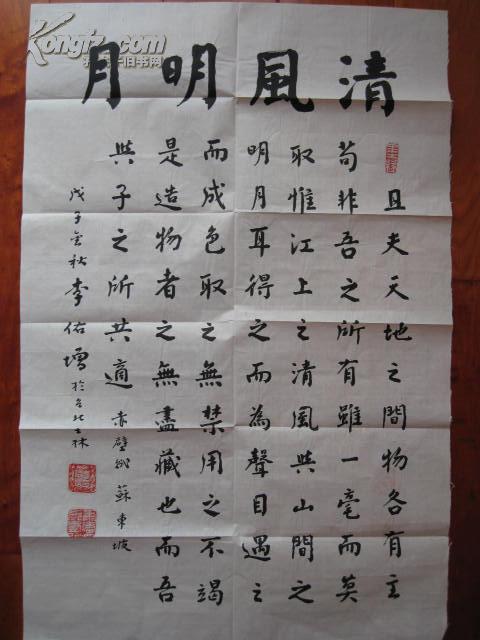 Kongfz.com
孔夫子旧书网
清風明月
且夫天地之間物各有主
苟非吾之所有雖一毫而莫
取惟江上之清風與山間之
明月耳得之而為聲目遇之
而成色取之無禁用之不竭
是造物者之無盡藏也而吾
與子之所共適 赤壁賦 蘇東坡
戊子金秋李佑增於台北士林